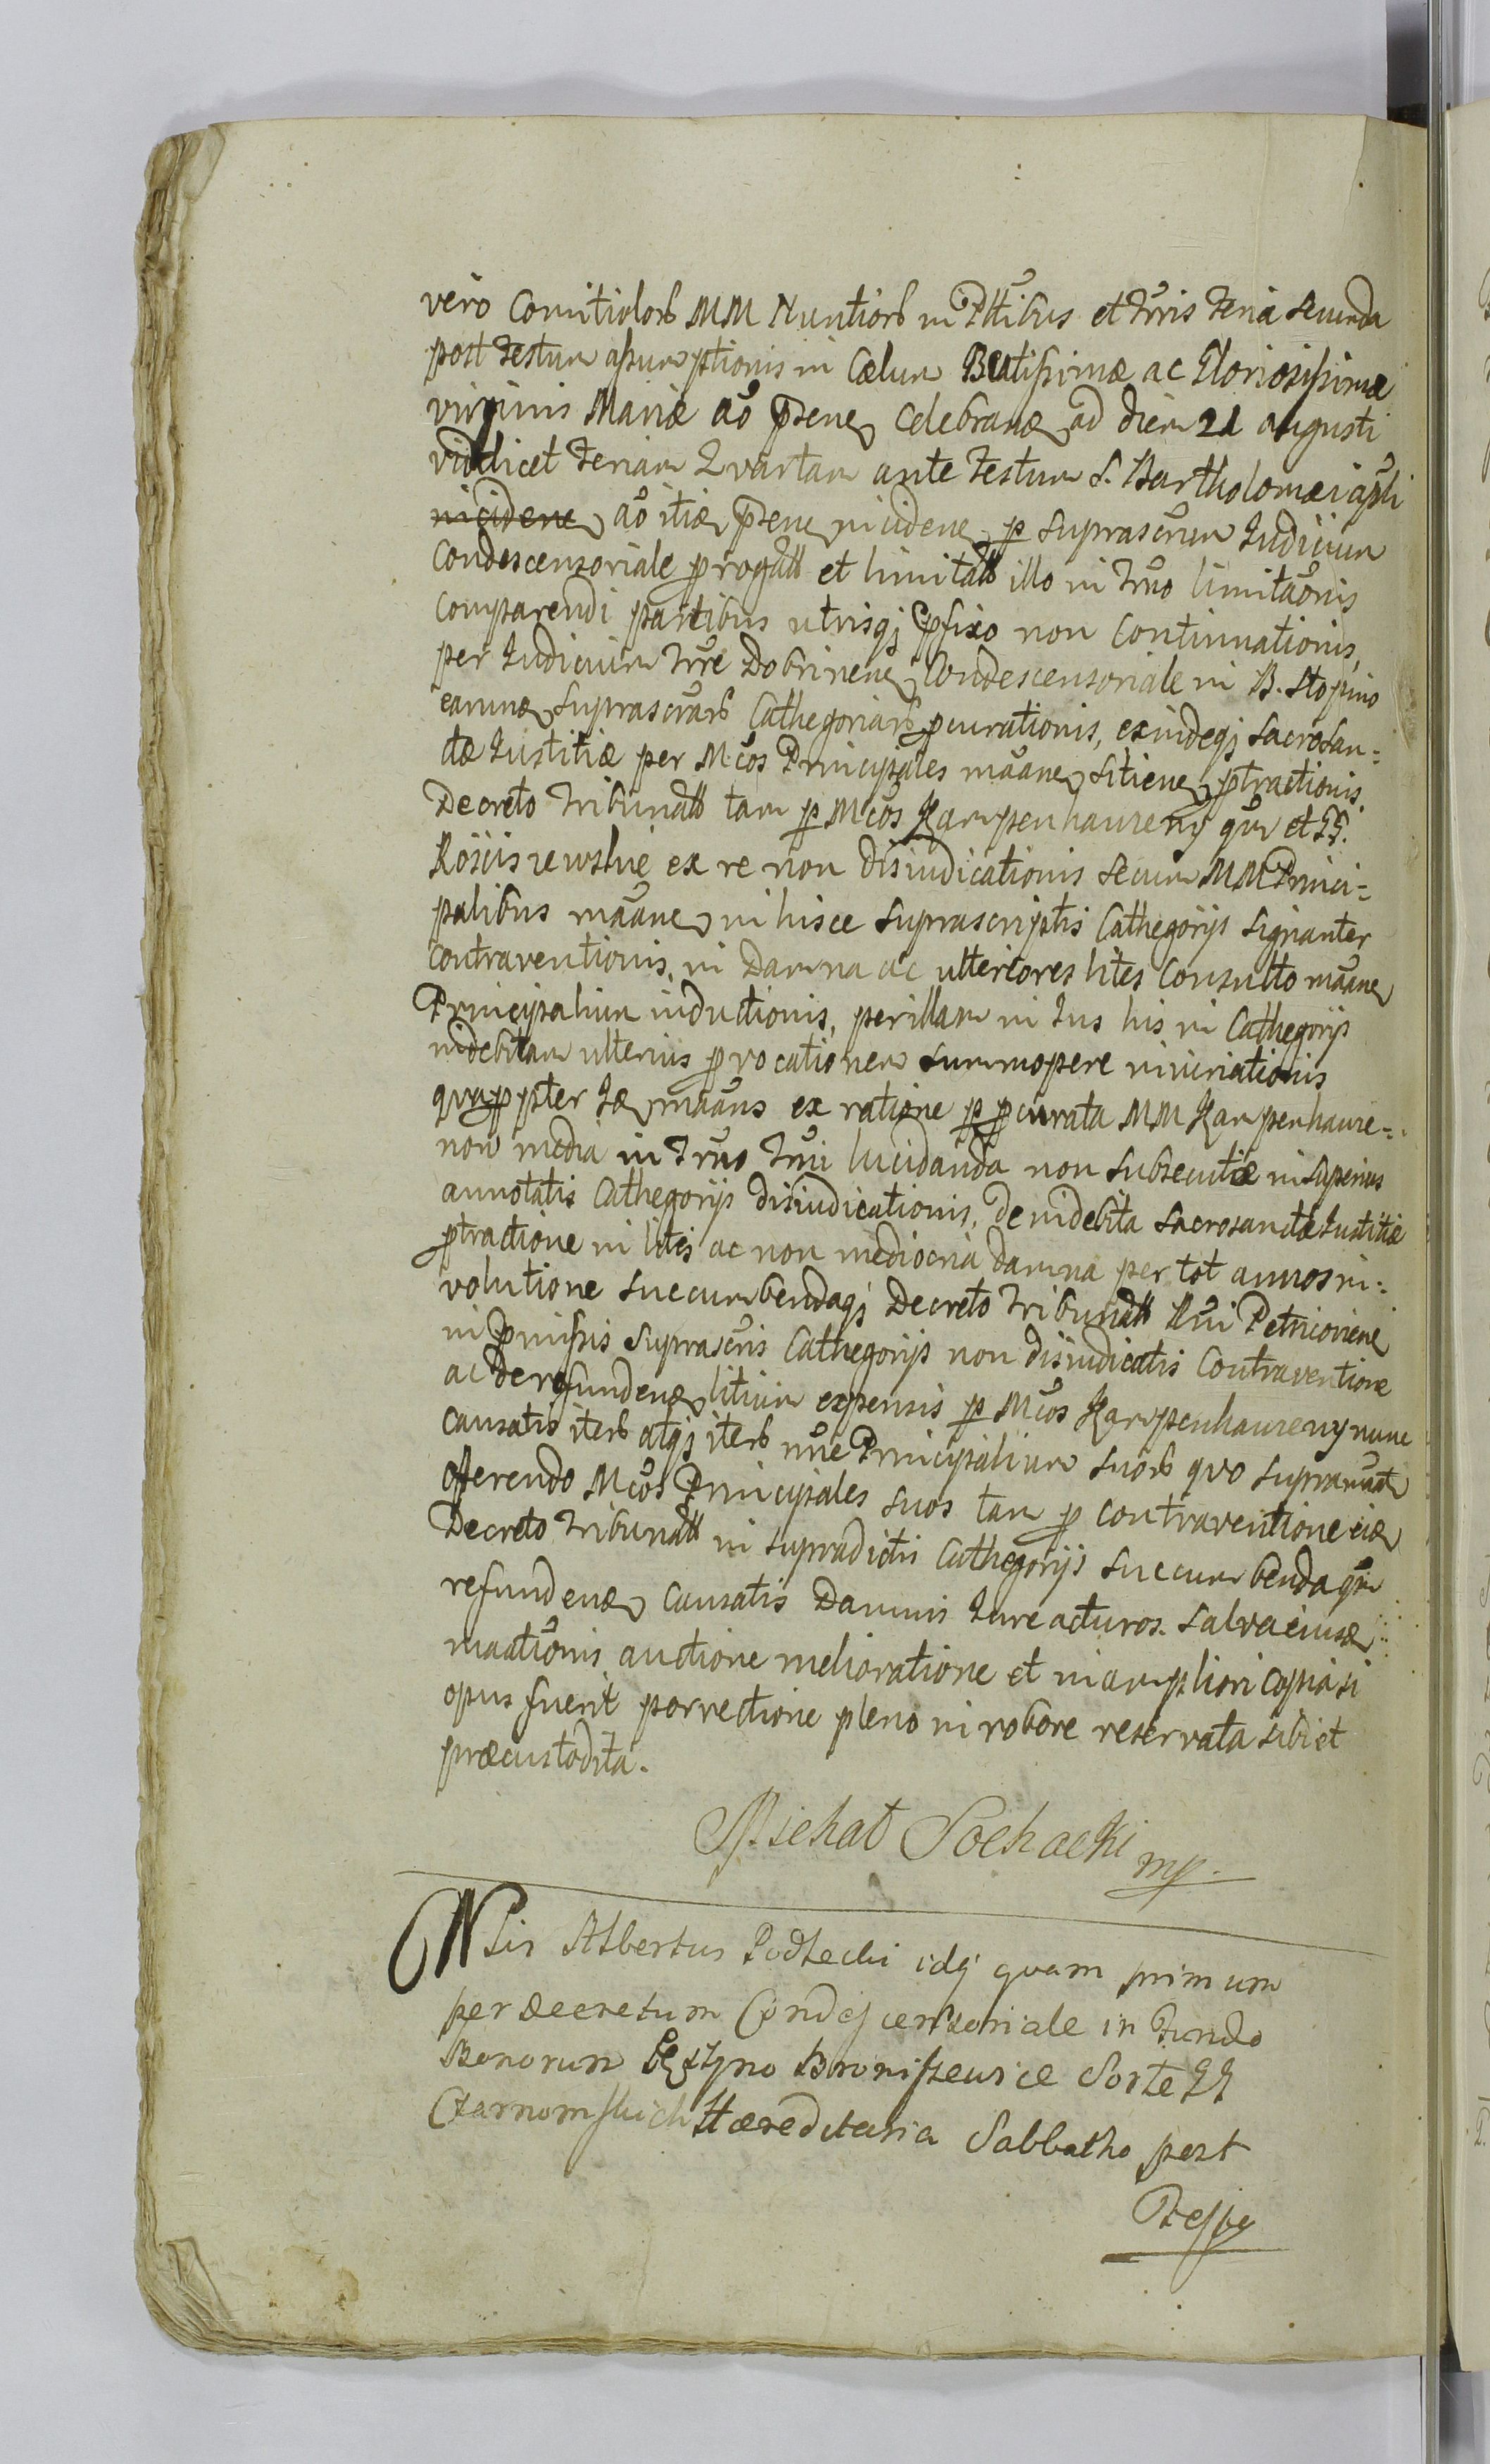 vero Comitiolor MM Nuntiorb in Pttibus et Trris Feria Secunda
post Festum assumptionis in Cælum Beatissimæ ac Gloriosissimæ
virginis Mariæ aõ p̃sen celebranæ ad diem 21 augusti
videlicet Feriam Quartam ante Festum S. Bartholomæi apłi
incidene aõ itiæ p̃sene incidene p suprascrum Judicium
Condescensoriale prorogatt et limitatt illo in Trno limitaõnis
comparendi partibus utrisqj p̃fixo non Continuationis,
per Judicium Trre Dobrinene Condescensoriale in B. Stopino
earunæ Suprascrarb Cathegoriarb pcurationis, exindeqj Sacrosan=
tæ Justitiæ per Mcos Principales maane sitiene ptractionis,
Decreto Tribunatt tam p Mcos Karpenhaureny qm et GG.
Rościszewskie ex re non disiudicationis Secum MM Princi=
palibus maane in hisce suprascriptis Cathegorijs signanter
contraventionis, in Damna ac ulteriores lites Consulto maane
Principalium inductionis, perillam in Jus his in Cathegorijs
indebitam ulterius provocationem summopere iniuriationis
quappter Jæ maans ex ratione p pcurata MM Karpenhaure=
non media in Trno Trri lucidanda non Subsecutiæ in superius
annotatis Cathegorijs disiudicationis, de indebita Sacrosanctæ Justitiæ
ptractione in lites ac non mediocria damna per tot annos in=
volutione succumbendaqj Decreto Tribunatt Rni Petricoviene
in p̃missis Suprascris Cathegorijs non disiudicatis Contraventione
ac De refundenæ litium expensis p Mcos Karpenhaureny nunc
causatis iterb atqj iterb nne Principalium suorb quo supra maat
offerendo Mcos Principales suos tam p contraventione eiæ
Decreto Tribunatt in supradictis Cathegorijs succumbenda qm
refundenæ causatis Damnis Jure acturos. Salva eiusæ
maationis auctione melioratione et in ampliori copia si
opus fuerit porrectione pleno in robore reservata sibi et
præcustodita.
Michał Sochacki mp.
NSis Albertus Podlecki idqj quam primum
per decretum Condescensoriale in Fundo
Bonorum Bronissewice Sorte GG
Czarnomskich Hæreditaria Sabbatho post